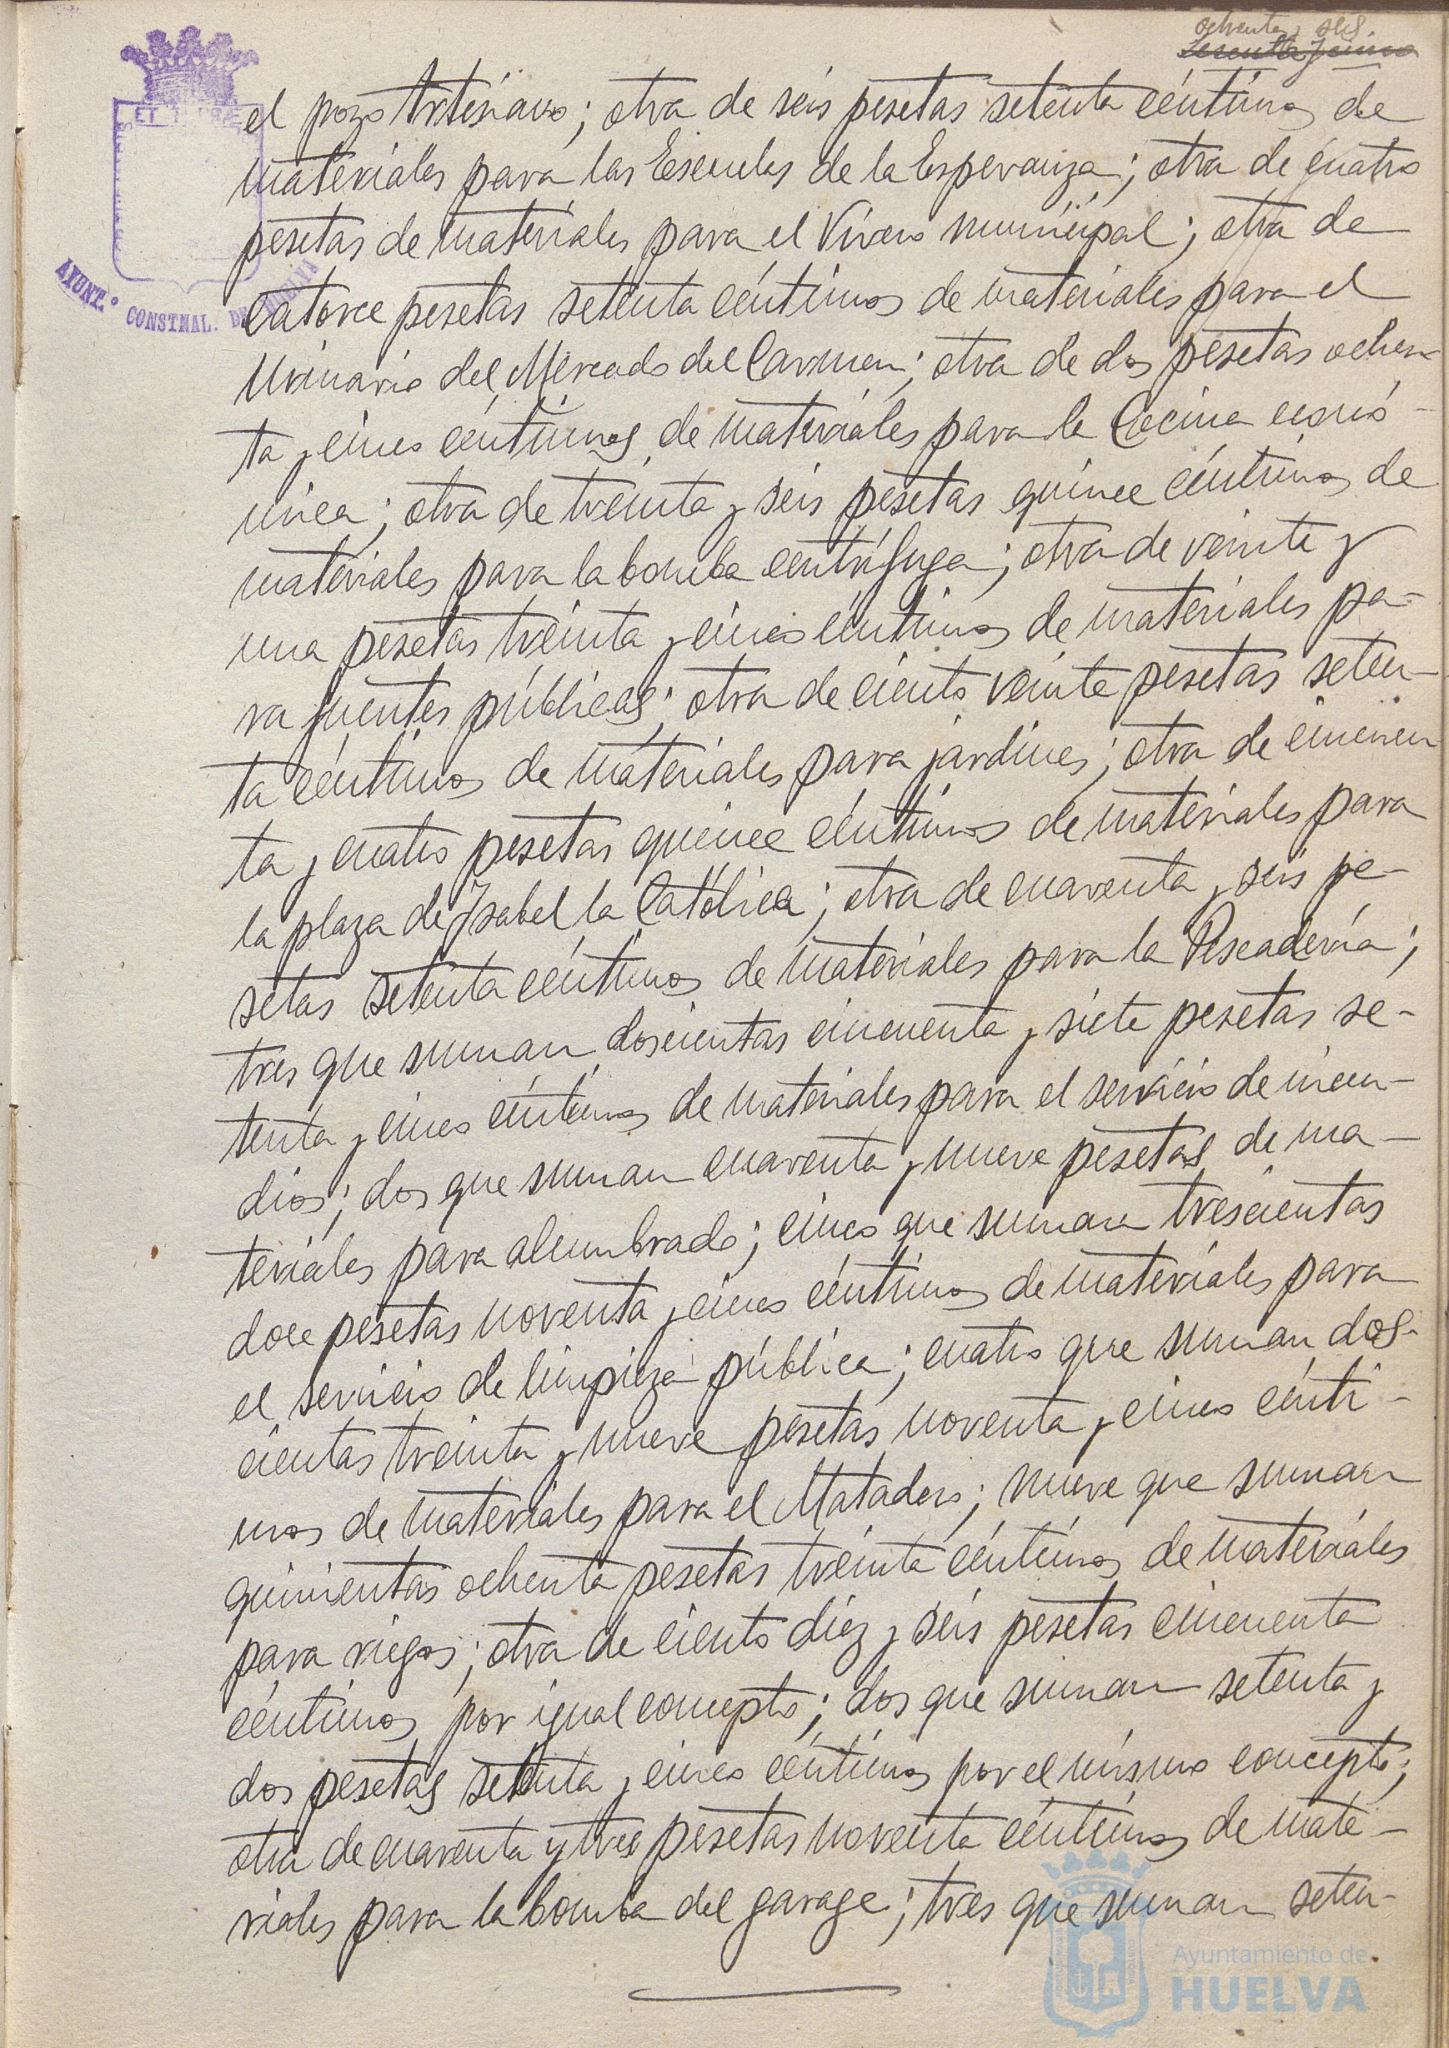 ochenta y seis
sesenta y cinco
el pozo Artesiano; otra de seis pesetas setenta céntimos de
materiales para las Escuelas de la Esperanza; otra de cuatro
pesetas de materiales para el Vivero municipal; otra de
catorce pesetas setenta céntimos de materiales para el
Urinario del Mercado del Carmen; otra de dos pesetas ochen-
ta y cinco céntimos de materiales para la Cocina econó-
mica; otra de treinta y seis pesetas quince céntimos de
materiales para la bomba centrífuga; otra de veinte y
una pesetas treinta y cinco céntimos de materiales pa-
ra fuentes públicas; otra de ciento veinte pesetas seten-
ta céntimos de materiales para jardines; otra de cincuen
ta y cuatro pesetas quince céntimos de materiales para
la plaza de Ysabel la Católica; otra de cuarenta y seis pe-
setas setenta céntimos de materiales para la Pescadería;
tres que suman doscientas cincuenta y siete pesetas se-
tenta y cinco céntimos de materiales para el servicio de incen-
dios; dos que suman cuarenta y nueve pesetas de ma-
teriales para alumbrado; cinco que suman trescientas
doce pesetas noventa y cinco céntimos de materiales para
el servicio de limpieza pública; cuatro que suman dos-
cientas treinta y nueve pesetas noventa y cinco cénti-
mos de materiales para el Matadero; nueve que suman
quinientas ochenta pesetas treinta céntimos de materiales
para riegos; otra de ciento diez y seis pesetas cincuenta
céntimos por igual concepto; dos que suman setenta y
dos pesetas setenta y cinco céntimos por el mismo concepto;
otra de cuarenta y tres pesetas noventa céntimos de mate-
riales para la bomba del garage; tres que suman seten-
AYUNT.º CONSTNAL. DE
Ayuntamiento de
HUELVA